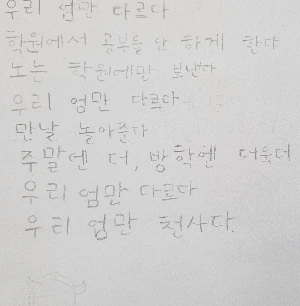 우리 엄만 다르다
학원에서 공부를 안 하게 한다
노는 학원에만 보낸다
우리 엄만 다르다
만날 놀아준다
주말엔 더, 방학엔 더욱더
우리 엄만 다르다
우리 엄만 천사다.